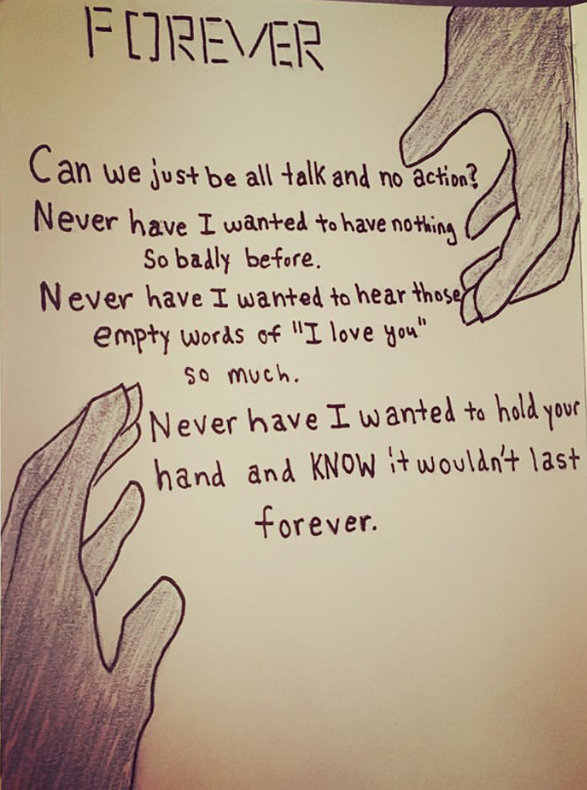 FOREVER
Can we just be all talk and no action?
Never have I wanted to have nothing
So badly before.
Never have I wanted to hear those
empty words of "I love you"
so much.
Never have I wanted to hold your
hand and KNOW it wouldn't last
forever.